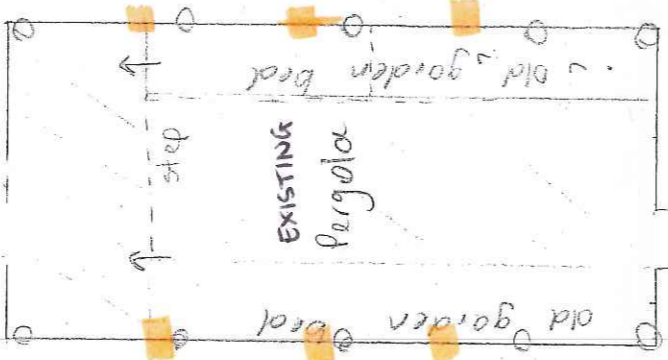 old garden bed
step
EXISTING
Pergola
old garden bed